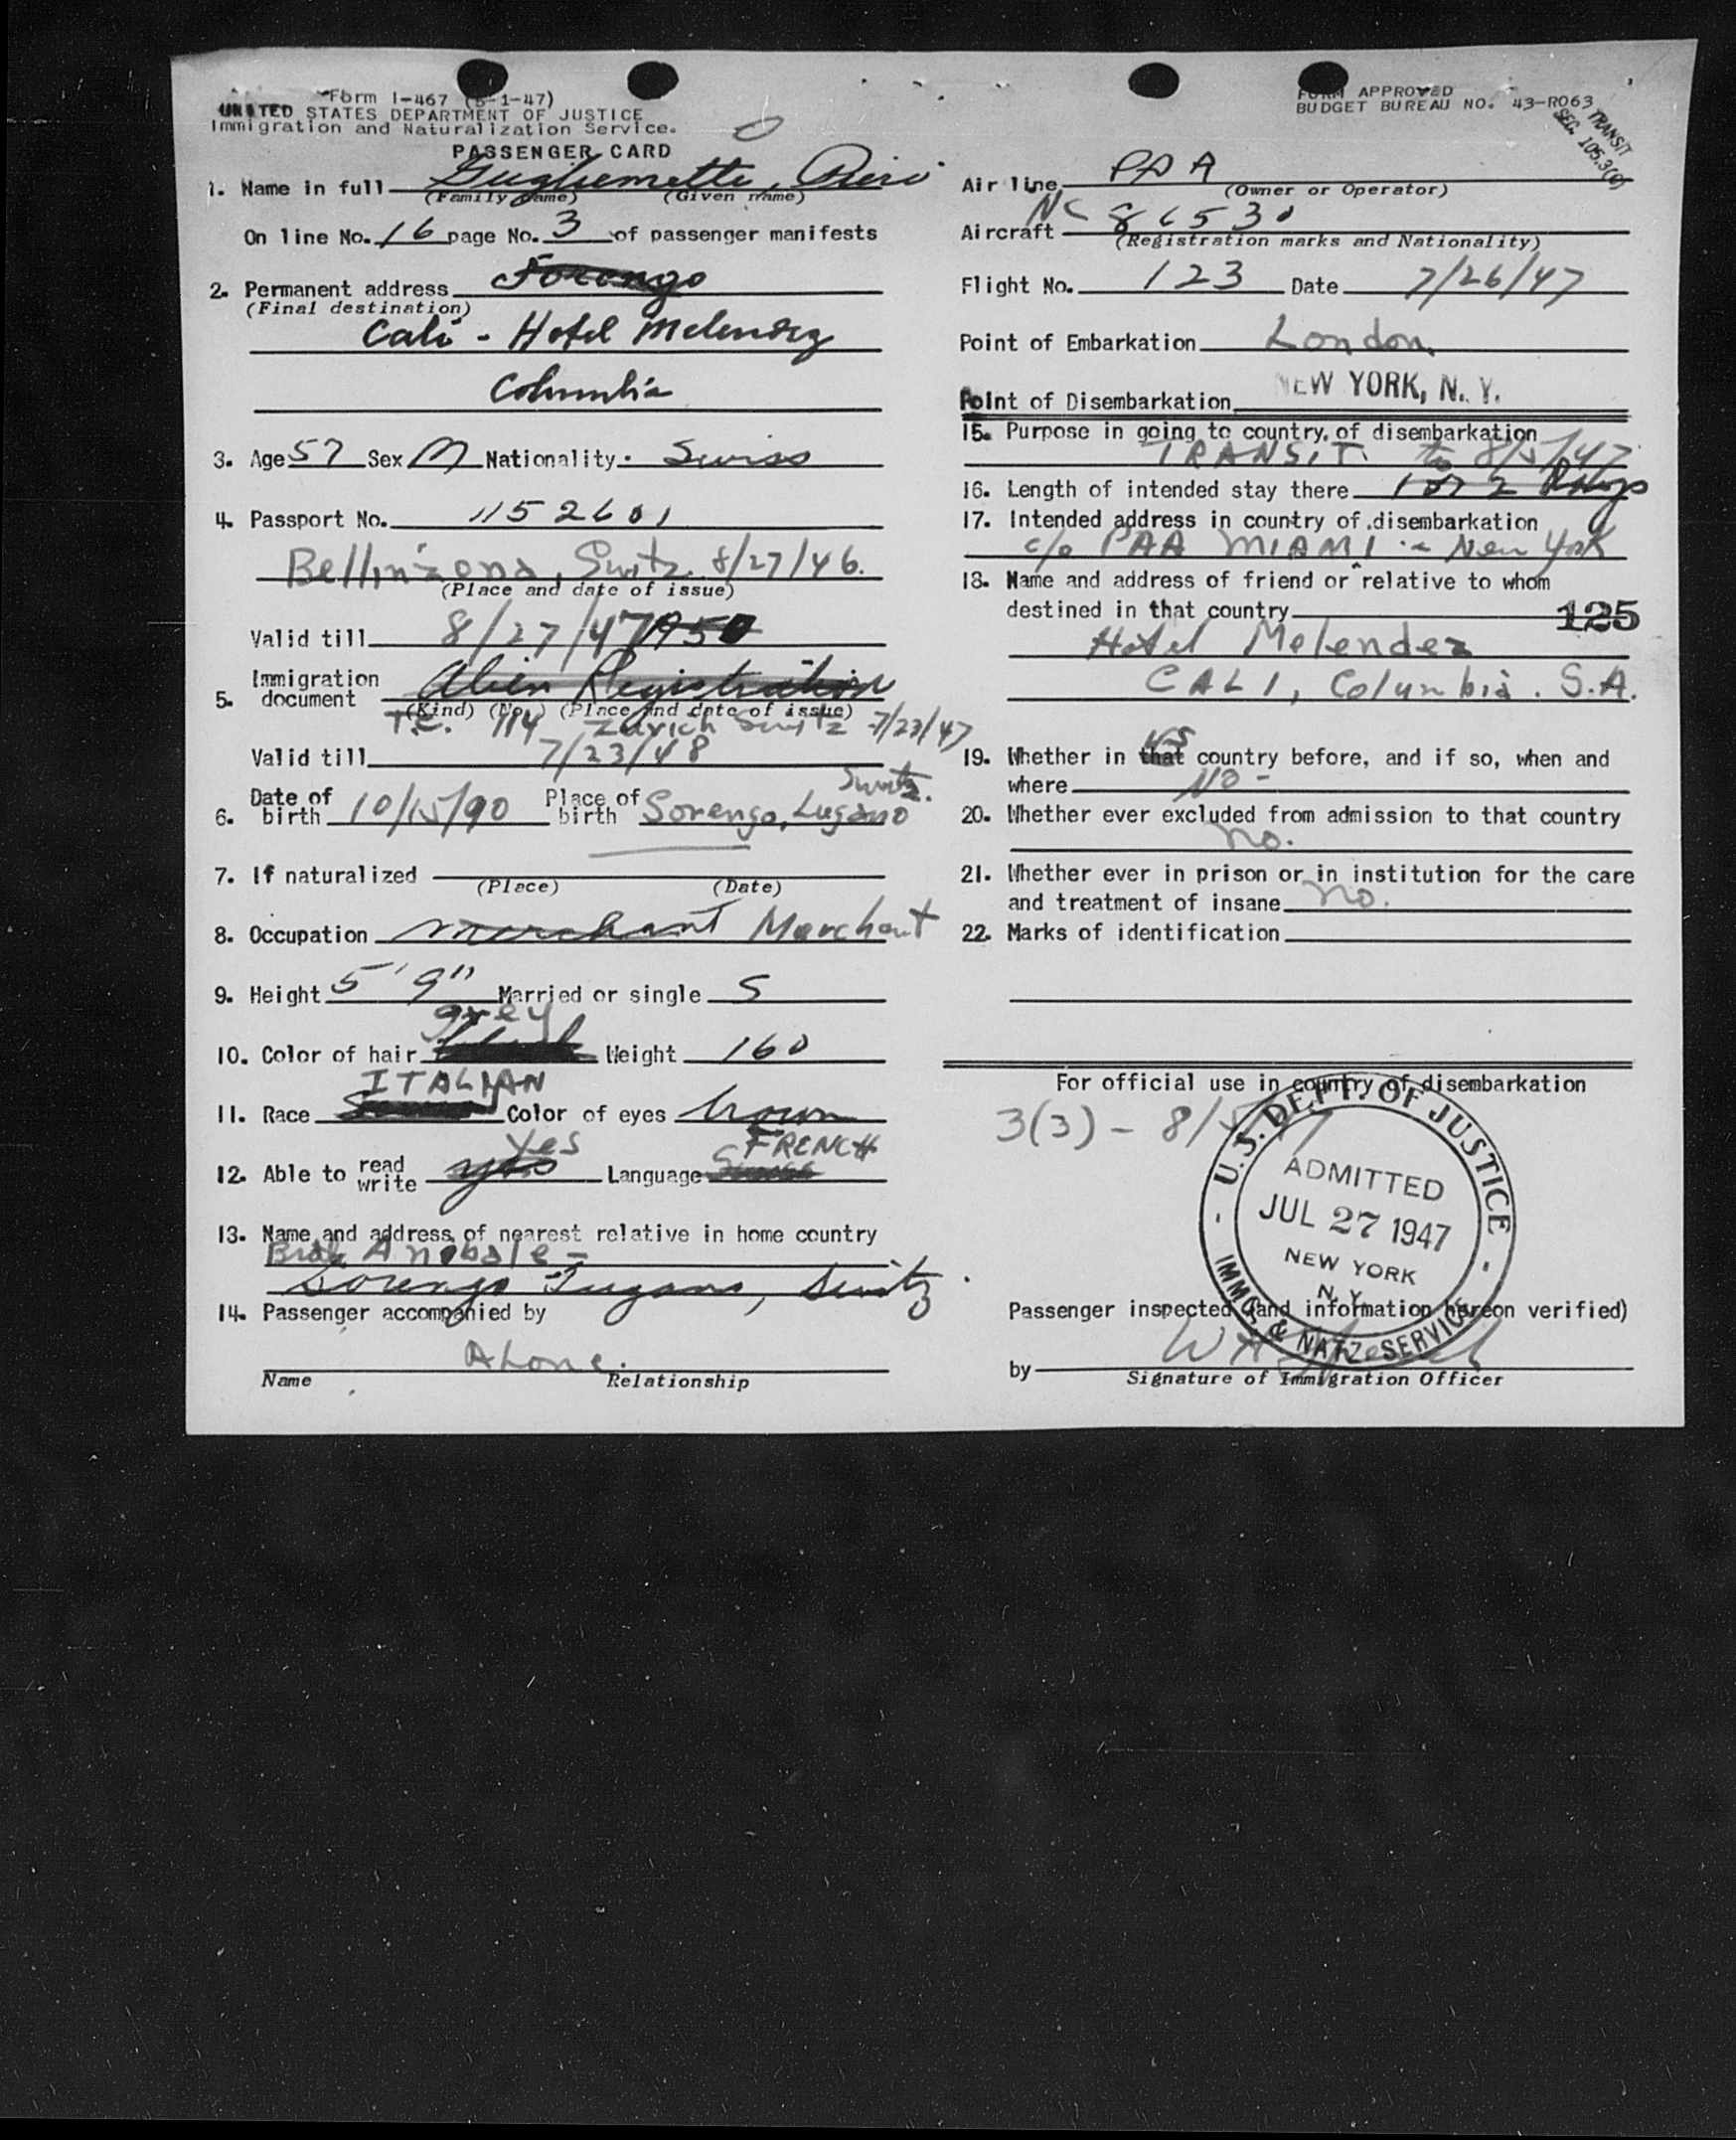 Form I-467 (5-1-47)
UNITED STATES DEPARTMENT OF JUSTICE
Immigration and Naturalization Service.
PASSENGER CARD
1. Name in full Gugliemette, Piero
(Family name) (Given name)
On line No. 16 page No. 3 of passenger manifests
2. Permanent address
(Final destination)
Cali - Hotel Melendez
Columbia
3. Age 57 Sex M Nationality. Swiss
4. Passport No. 1152601
Bellinzona, Switz. 8/27/46.
(Place and date of issue)
Valid till 8/27/47 1950
5. Immigration document Alien Registration
(Kind) (No.) (Place and date of issue)
T.C. 114 Zurich Switz 7/23/47
Valid till 7/23/48
Switz.
6. Date of birth 10/15/90 Place of birth Sorengo, Lugano
7. If naturalized
(Place) (Date)
8. Occupation merchant Merchant
9. Height 5' 9" Married or single S
grey
10. Color of hair Weight 160
ITALIAN
11. Race Color of eyes brown
Yes FRENCH
12. Able to read write yes Language
13. Name and address of nearest relative in home country
Anobale -
Sorengo Lugano, Switz.
14. Passenger accompanied by
Alone.
Name Relationship
FORM APPROVED
BUDGET BUREAU NO. 43-R063
TRANSIT
SEC. 105.3(c)
Air line PAA
(Owner or Operator)
Aircraft NC 86530
(Registration marks and Nationality)
Flight No. 123 Date 7/26/47
Point of Embarkation London
Point of Disembarkation NEW YORK, N. Y.
15. Purpose in going to country of disembarkation
TRANSIT to 8/5/47
16. Length of intended stay there 1 or 2 Days
17. Intended address in country of disembarkation
c/o PAA MIAMI New York
18. Name and address of friend or relative to whom
destined in that country 125
Hotel Melendez
CALI, Columbia. S.A.
19. Whether in that country before, and if so, when and
where No -
20. Whether ever excluded from admission to that country
no.
21. Whether ever in prison or in institution for the care
and treatment of insane no.
22. Marks of identification
For official use in country of disembarkation
3(3) - 8/5/47
U.S. DEPT. OF JUSTICE
ADMITTED
JUL 27 1947
NEW YORK
N. Y.
IMMG. & NATZ. SERVICE
Passenger inspected (and information hereon verified)
by
Signature of Immigration Officer